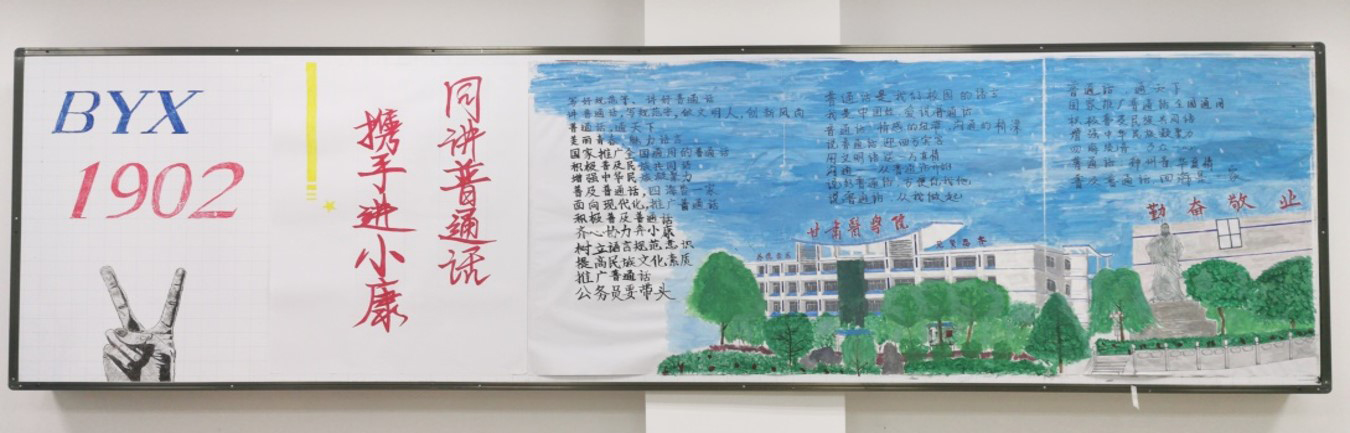 BYX
1902
同讲普通话
携手进小康
写好规范字、讲好普通话
讲普通话,写规范字,做文明人,创新风尚
普通话,通天下
国家推广全国通用的普通话
积极普及民族共同语
增强中华民族凝聚力
普及普通话,四海是一家
面向现代化,推广普通话
积极普及普通话
齐心协力奔小康
树立语言规范意识
提高民族文化素质
推广普通话
公务员要带头
普通话是我们校园的语言
我是中国娃,爱说普通话
普通话 情感的纽带,沟通的桥梁
说普通话 迎四方宾客
用文明语
沟通
说好普通话,方便你我他
说普通话,从校做起
普通话 通天下
国家推广普通话全国通用
积极普及民族共同语
增强中华民族凝聚力
普通话 神州音
普及普通话 四海是一家
甘肃医学院
勤奋敬业